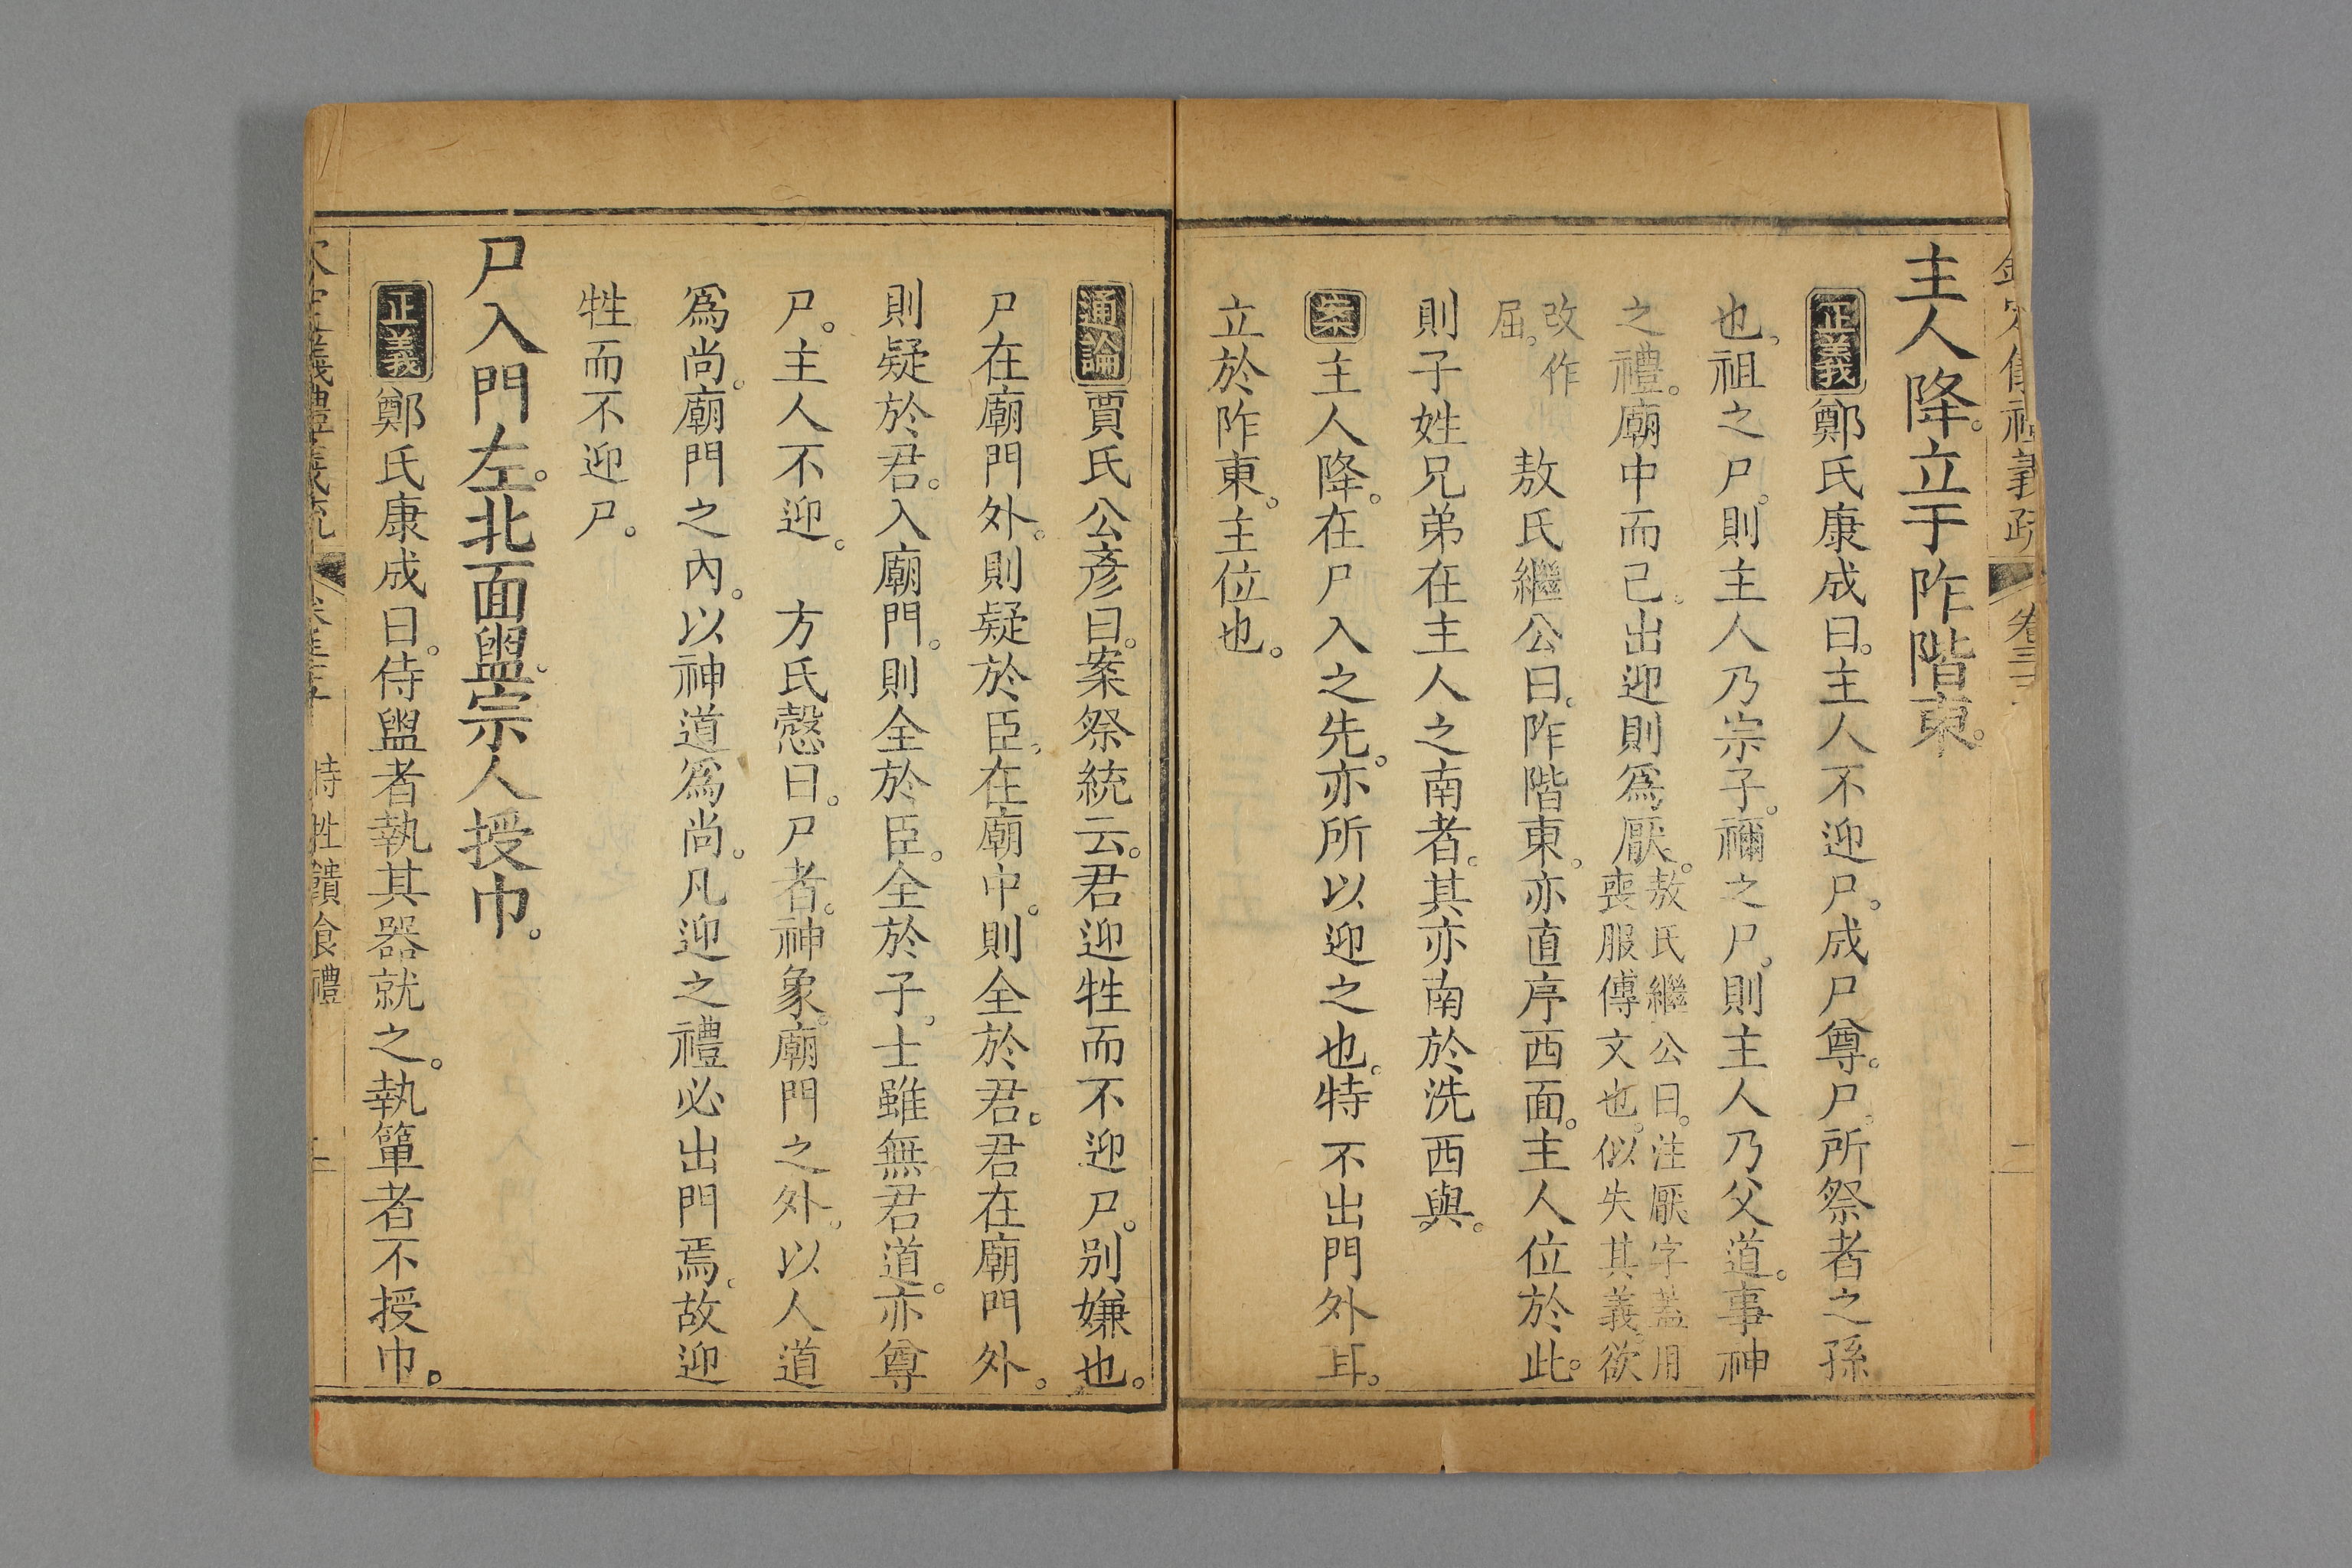 主人降。立于阼階東。
正義鄭氏康成曰。主人不迎尸。成尸尊。尸。所祭者之孫
也。祖之尸。則主人乃宗子。禰之尸。則主人乃父道。事神
之禮。廟中而已。出迎則爲厭。敖氏繼公曰。注厭字蓋用
喪服傳文也。似失其義。欲
改作
屈。
敖氏繼公曰。阼階東。亦直序西面。主人位於此。
則子姓兄弟在主人之南者。其亦南於洗西與。
案主人降。在尸入之先。亦所以迎之也。特不出門外耳。
立於阼東。主位也。
通論賈氏公彥曰。案祭統云。君迎牲而不迎尸。别嫌也。
尸在廟門外。則疑於臣。在廟中。則全於君。君在廟門外。
則疑於君。入廟門。則全於臣。全於子。士雖無君道。亦尊
尸。主人不迎。 方氏慤曰。尸者。神象。廟門之外。以人道
爲尚。廟門之內。以神道爲尚。凡迎之禮必出門焉。故迎
牲而不迎尸。
尸入門左。北面盥。宗人授巾。
正義鄭氏康成曰。侍盥者執其器就之。執簞者不授巾。
特牲饋食禮